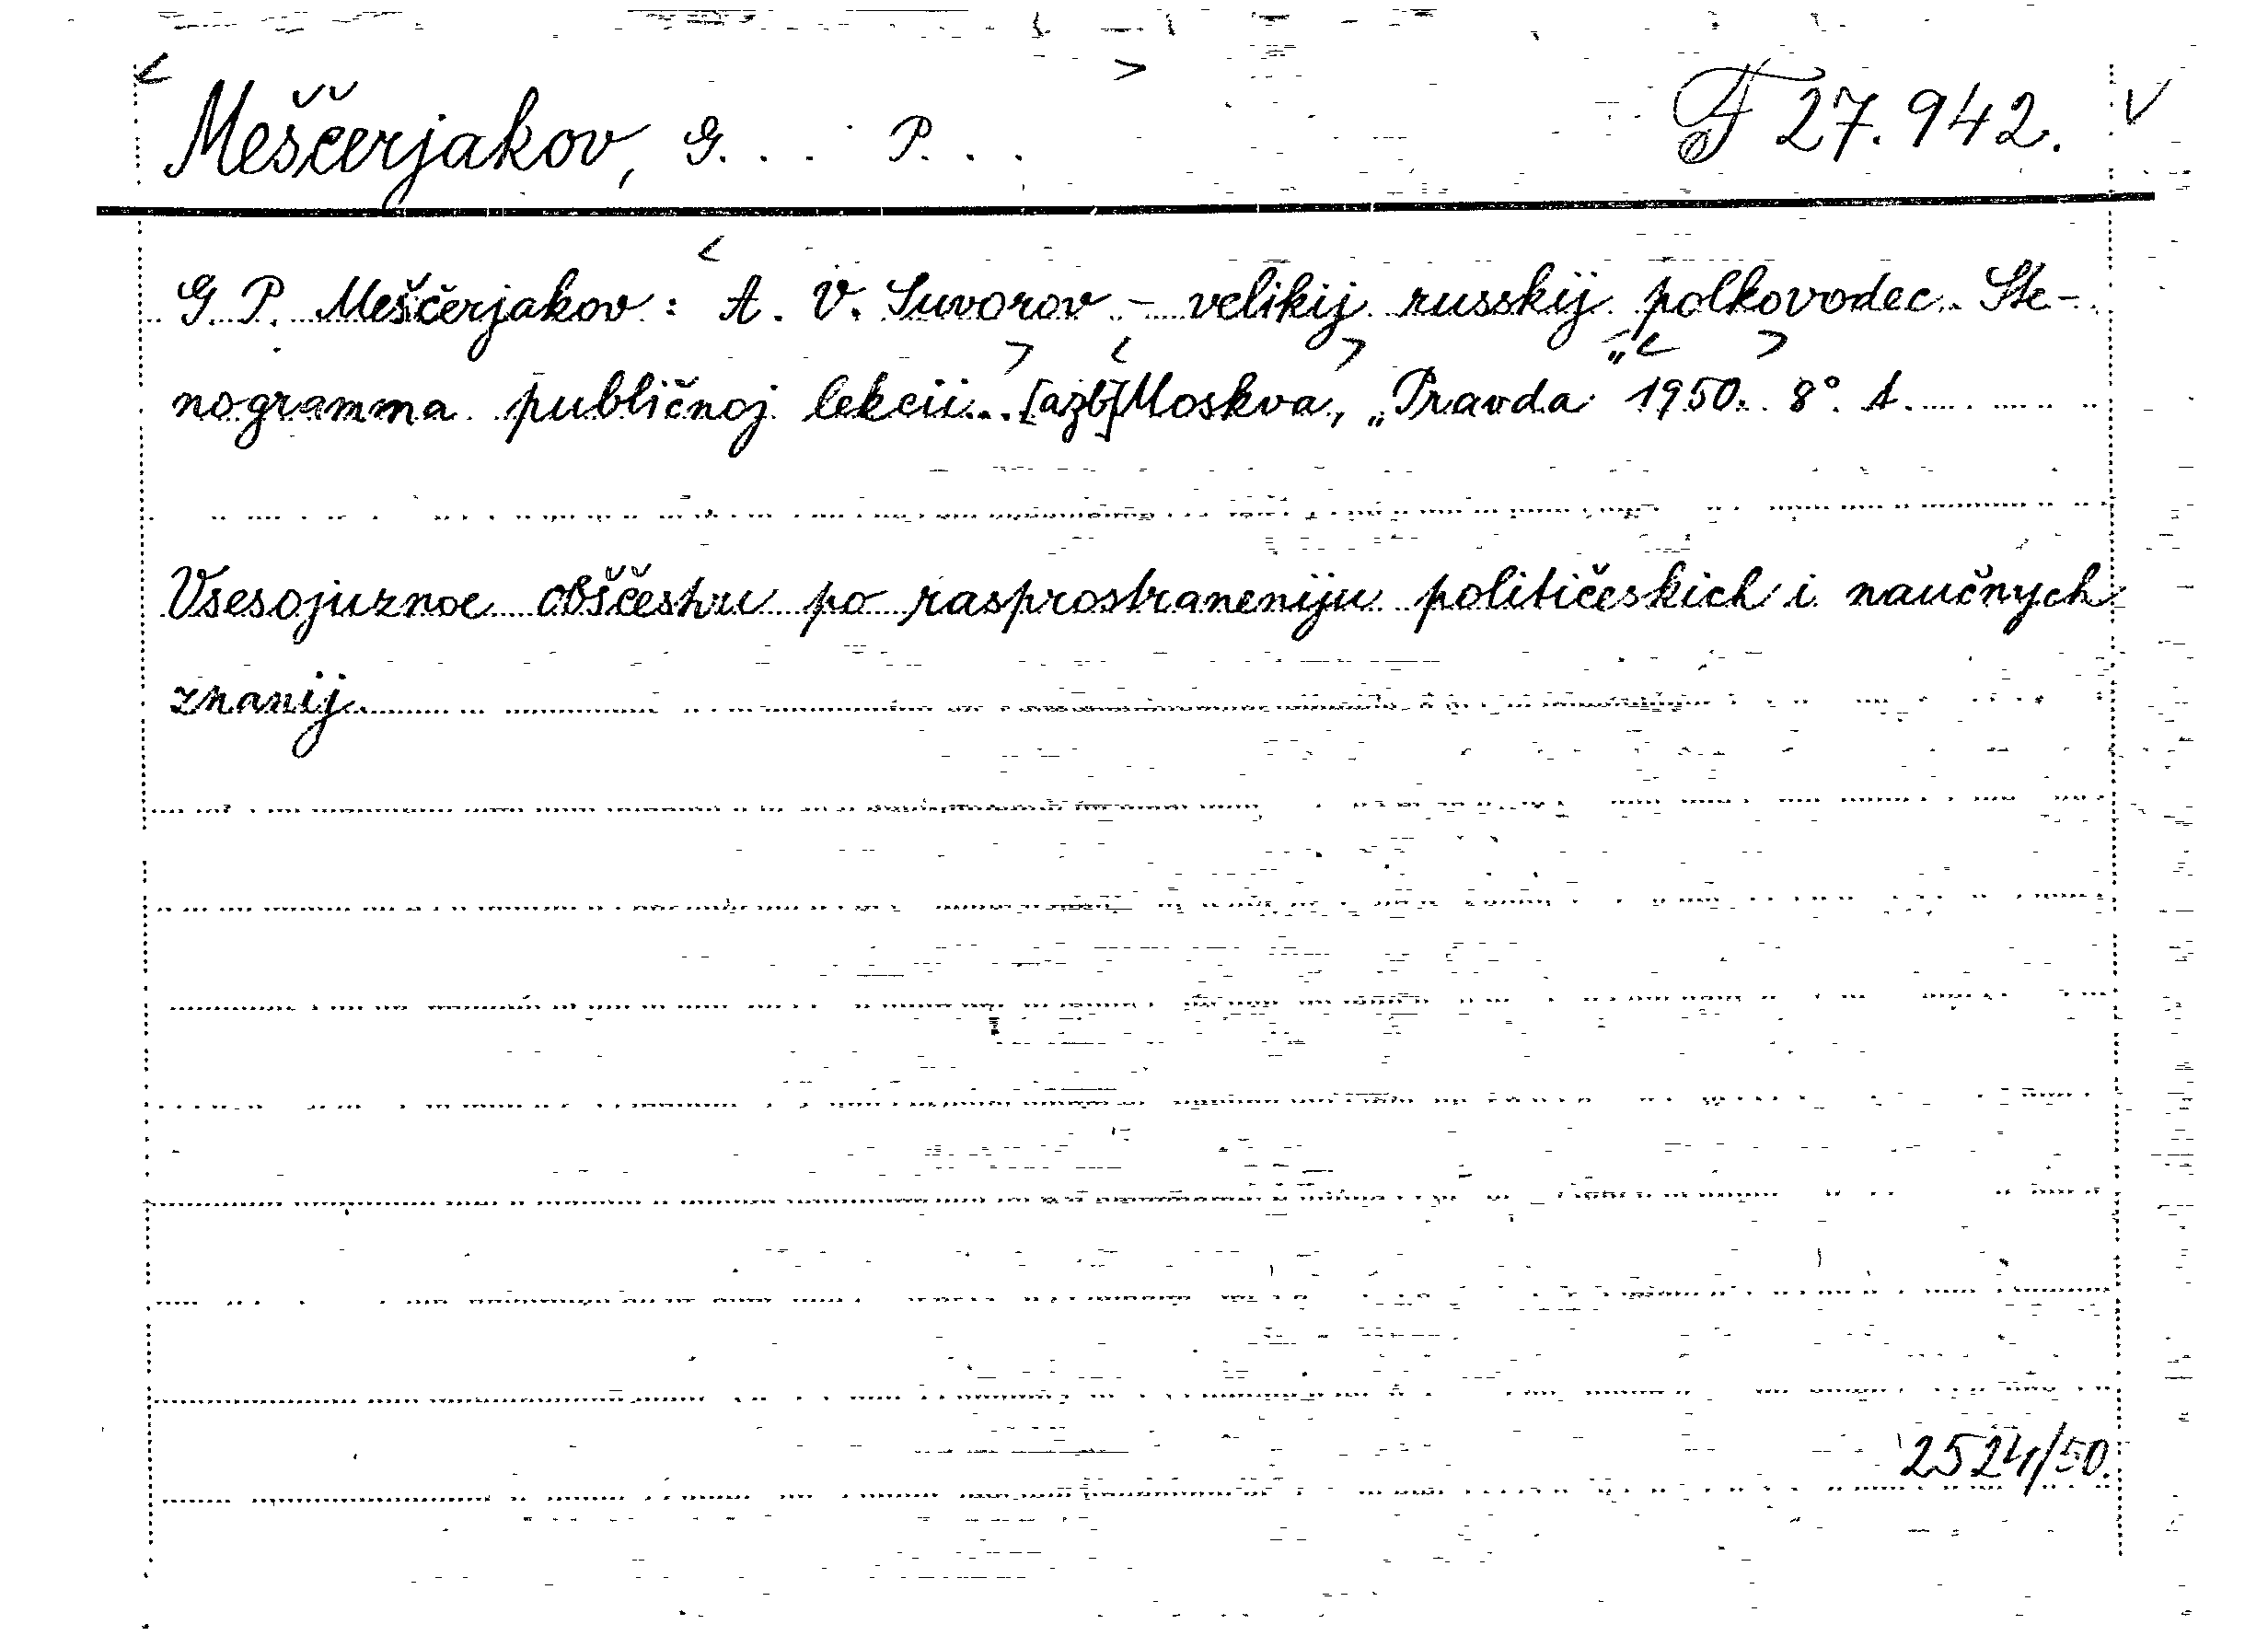 Meščerjakov, G... P... F 27.942.
G. P. Meščerjakov: A. V. Suvorov - velikij russkij polkovodec. Ste-
nogramma publičnoj lekcii... [azb] Moskva, „Pravda" 1950. 8°. A.
Vsesojuznoe obščestvu po rasprostraneniju političeskich i naučnych
znanij.
2524/50.